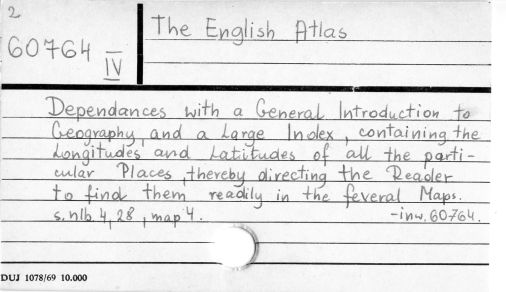 2
60764 IV
The English Atlas
Dependances with a General Introduction to
Geography, and a Large Index, containing the
Longitudes and Latitudes of all the parti-
cular Places, thereby directing the Reader
to find them readily in the feveral Maps.
s. nlb. 4, 28, map 4. -inw. 60764.
DUJ 1078/69 10.000